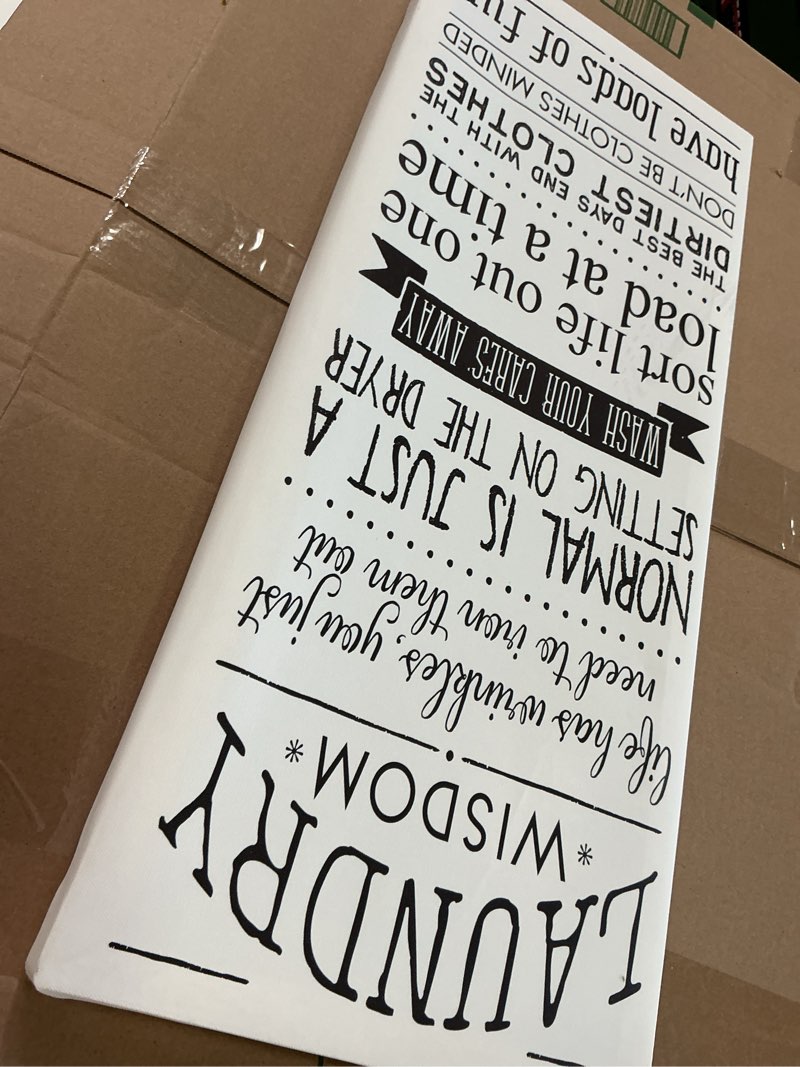 LAUNDRY
*WISDOM*
life has wrinkles, you just
need to iron them out
NORMAL IS JUST A
SETTING ON THE DRYER
WASH YOUR CARES AWAY
sort life out one
load at a time
THE BEST DAYS END WITH THE
DIRTIEST CLOTHES
DON'T BE CLOTHES MINDED
have loads of fun